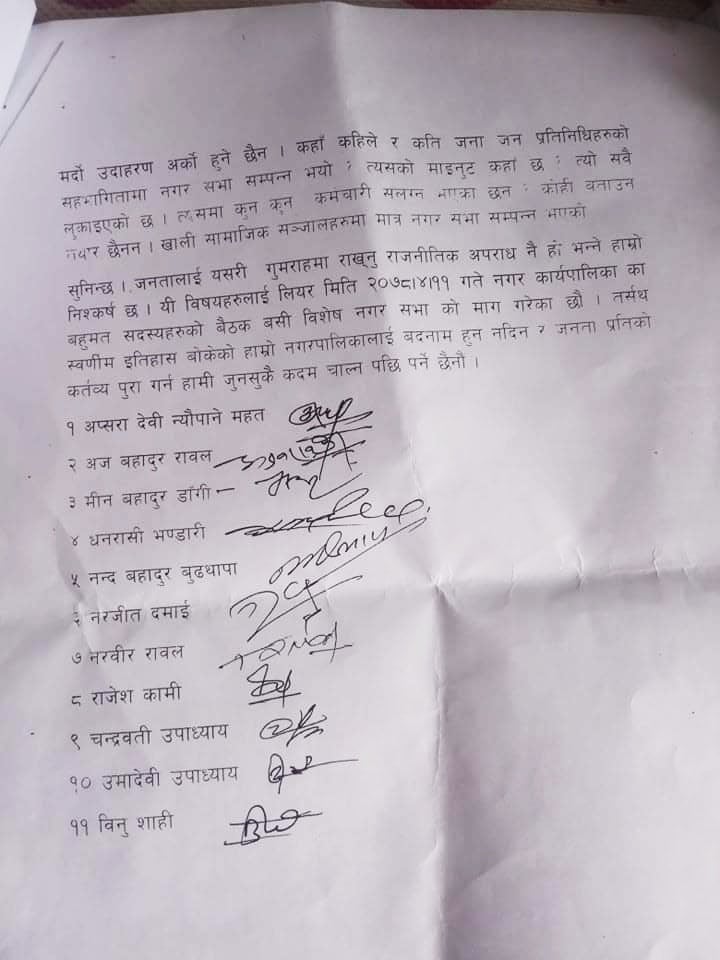 मर्दो उदाहरण अर्को हुने छैन । कहाँ कहिले र कति जना जन प्रतिनिधिहरुको
सहभागितामा नगर सभा सम्पन्न भयो ? त्यसको माइनुट कहां छ ? त्यो सवै
लुकाइएको छ । त्यसमा कुन कुन कमचारी सलग्न भएका छन ? कोही वताउन
तयार छैनन । खाली सामाजिक सञ्जालहरुमा मात्र नगर सभा सम्पन्न भएको
सुनिन्छ । जनतालाई यसरी गुमराहमा राख्नु राजनीतिक अपराध नै हो भन्ने हाम्रो
निश्कर्ष छ । यी विषयहरुलाई लियर मिति २०७८।४।११ गते नगर कार्यपालिका का
बहुमत सदस्यहरुको बैठक बसी विशेष नगर सभा को माग गरेका छौ । तर्सथ
स्वणीम इतिहास बोकेको हाम्रो नगरपालिकालाई बदनाम हुन नदिन र जनता प्रतिको
कर्तव्य पुरा गर्न हामी जुनसुकै कदम चाल्न पछि पर्ने छैनौ ।
१ अप्सरा देवी न्यौपाने महत
२ अज बहादुर रावल
३ मीन बहादुर डाँगी –
४ धनरासी भण्डारी
५ नन्द बहादुर बुढथापा
६ नरजीत दमाई
७ नरवीर रावल
८ राजेश कामी
९ चन्द्रवती उपाध्याय
१० उमादेवी उपाध्याय
११ विनु शाही